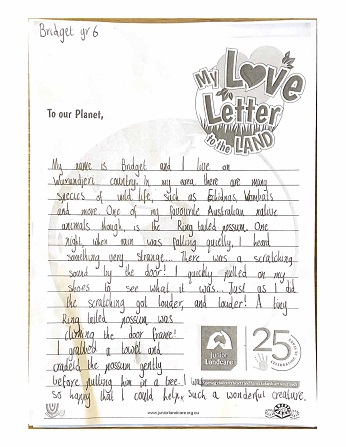 Bridget yr 6
My Love
Letter
to the LAND
To our Planet,
My name is Bridget and I live on
Wurundjeri country. In my area there are many
species of wild life, such as Echidnas, Wombats
and more. One of my favourite Australian native
animals though, is the Ring tailed possum. One
night, when rain was falling quietly, I heard
something very strange... There was a scratching
sound by the door! I quickly pulled on my
shoes to see what it was... Just as I did
the scratching got louder, and louder! A tiny
Ring tailed possum was
climbing the door frame!
I grabbed a towel and
the possum gently
before putting him in a tree. I was
so happy that I could help such a wonderful creature.
Junior
Landcare
25
www.juniorlandcare.org.au